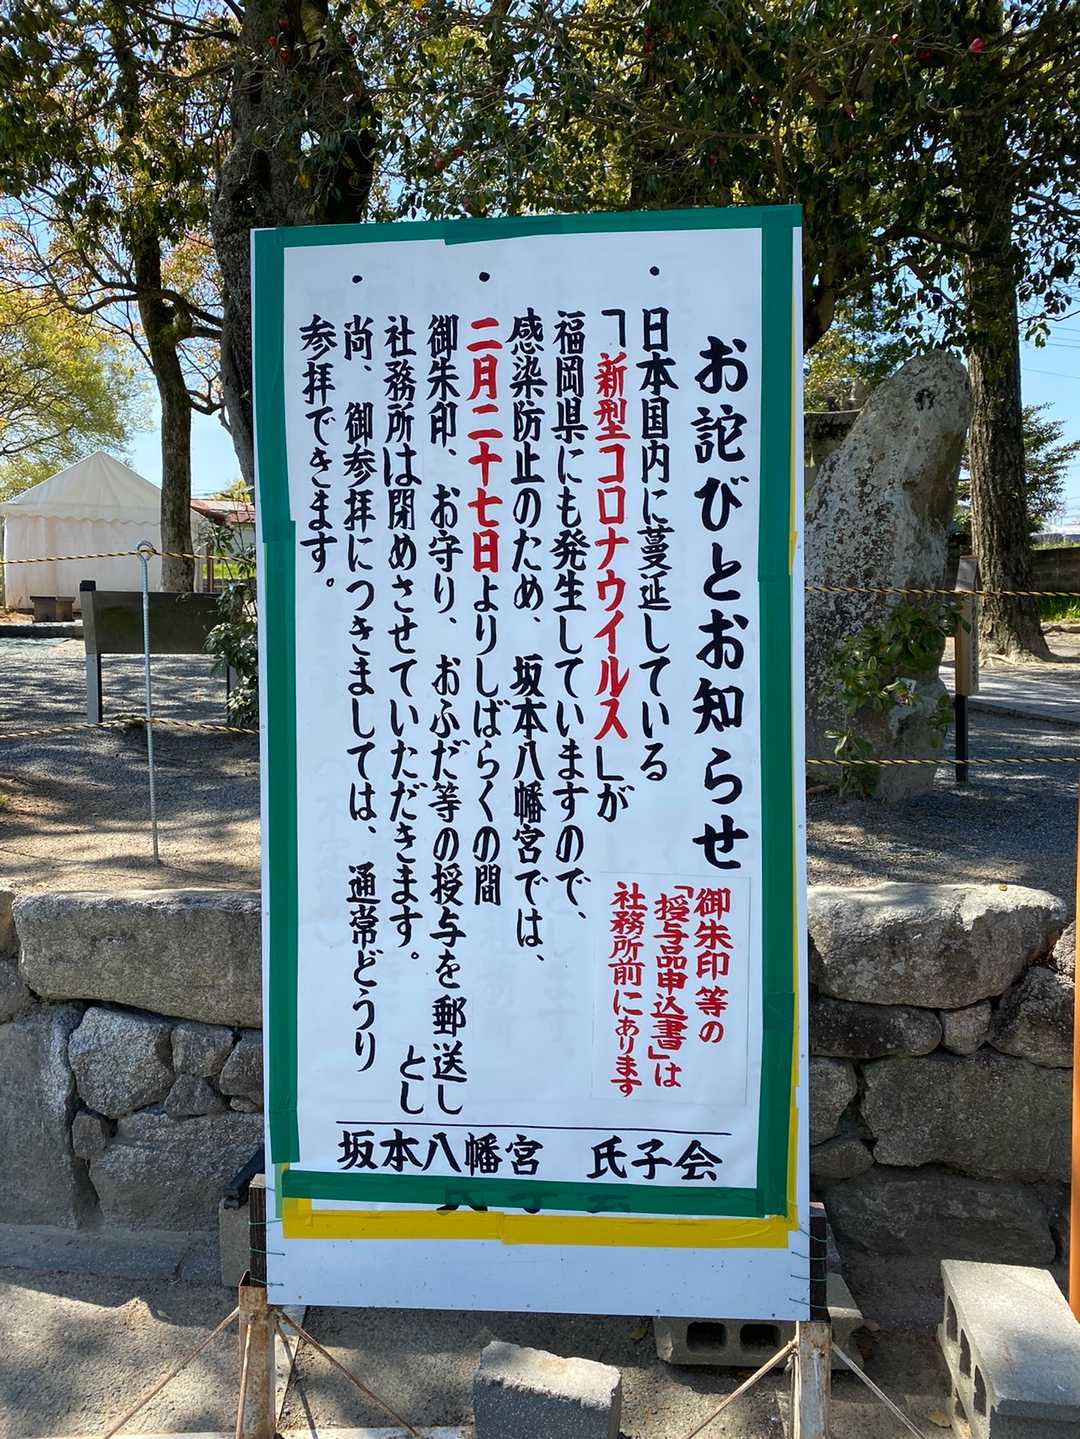 お詫びとお知らせ
御朱印等の
「授与品申込書」は
社務所前にあります
・日本国内に蔓延している
「新型コロナウイルス」が
福岡県にも発生していますので、
感染防止のため、坂本八幡宮では、
・二月二十七日よりしばらくの間
御朱印、お守り、おふだ等の授与を郵送し
とし
社務所は閉めさせていただきます。
・尚、御参拝につきましては、通常どうり
参拝できます。
坂本八幡宮 氏子会